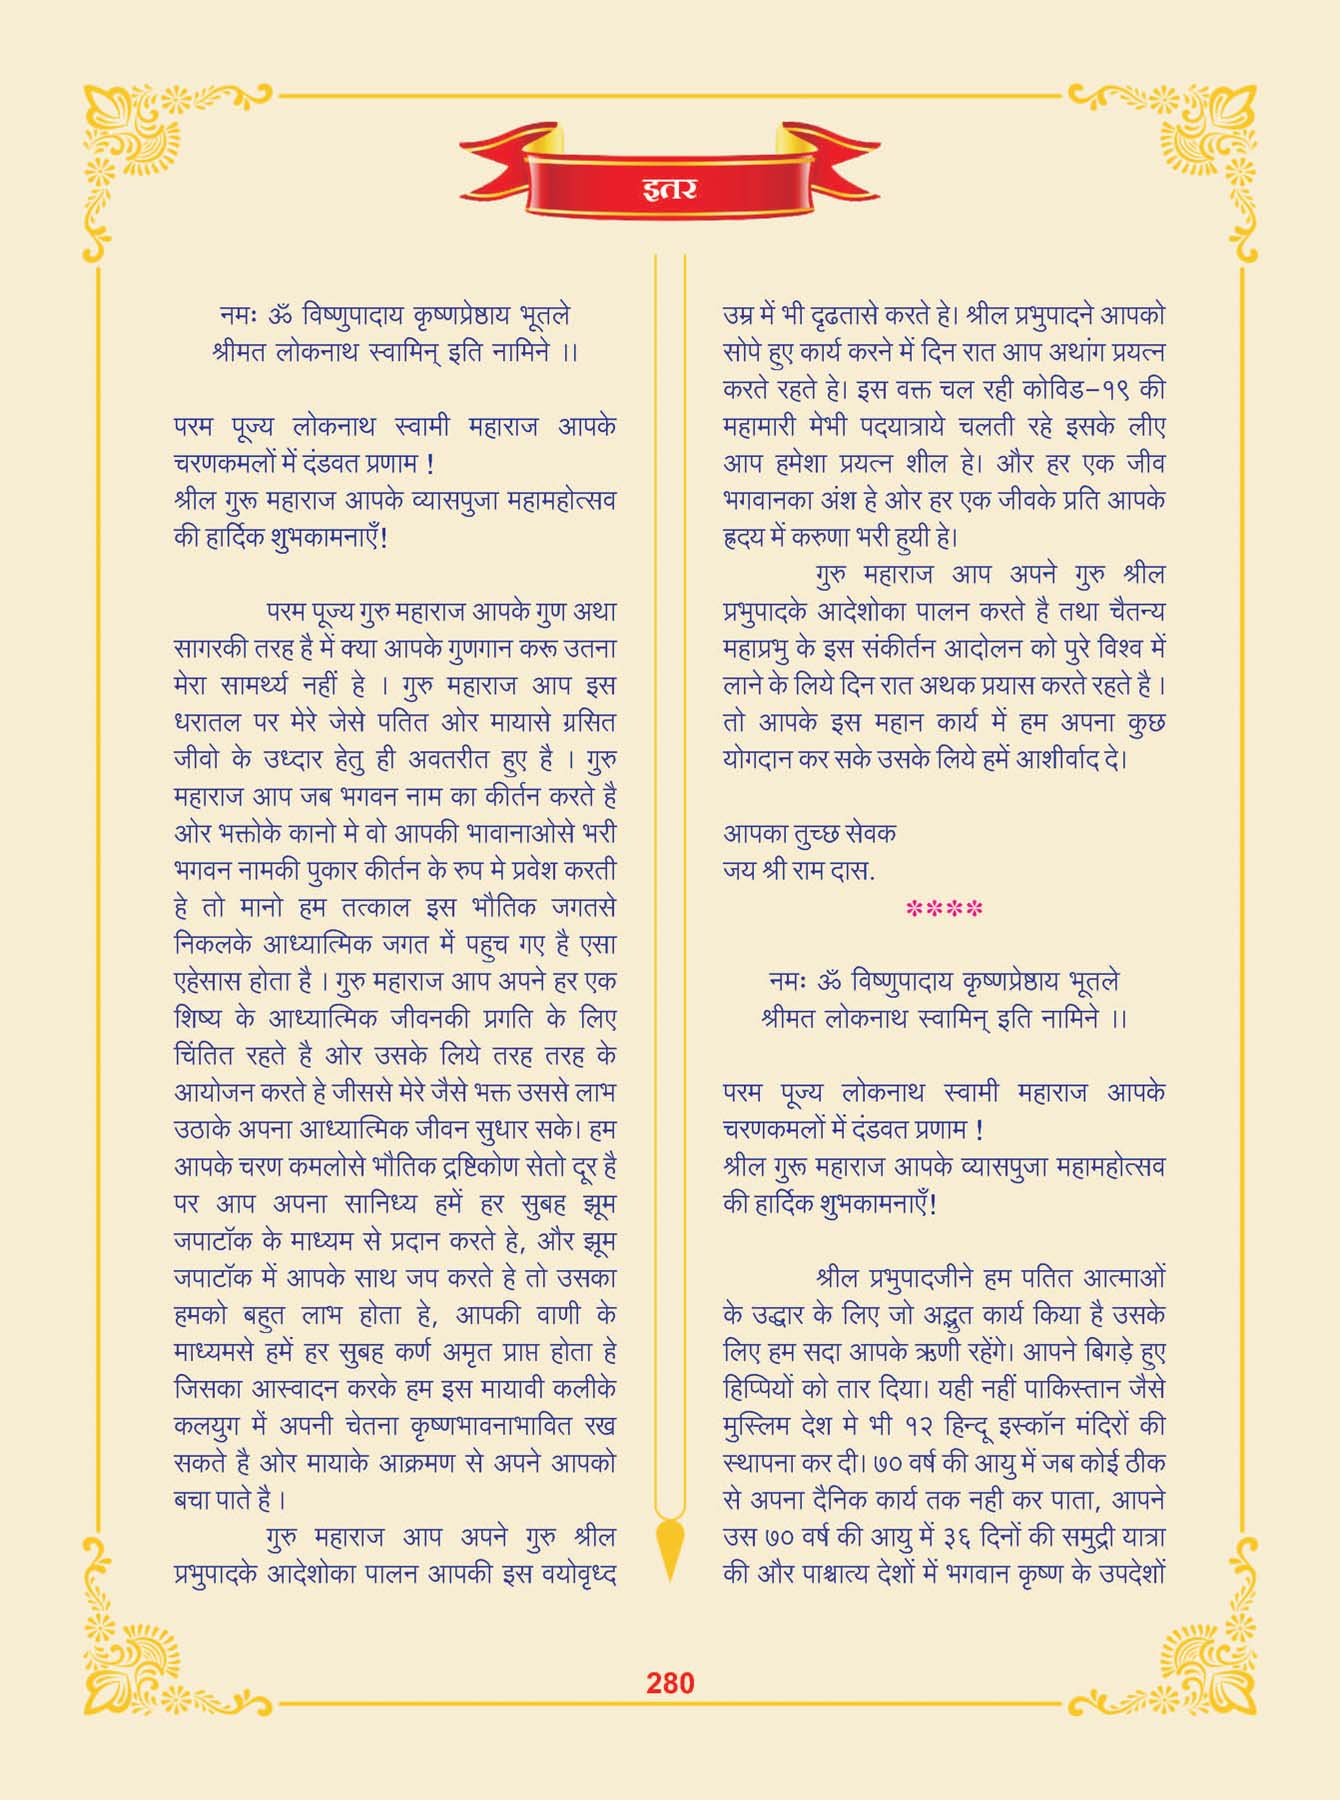 इतर
नमः ॐ विष्णुपादाय कृष्णप्रेष्ठाय भूतले
श्रीमत लोकनाथ स्वामिन् इति नामिने ।।
परम पूज्य लोकनाथ स्वामी महाराज आपके
चरणकमलों में दंडवत प्रणाम !
श्रील गुरू महाराज आपके व्यासपुजा महामहोत्सव
की हार्दिक शुभकामनाएँ!
परम पूज्य गुरु महाराज आपके गुण अथा
सागरकी तरह है में क्या आपके गुणगान करू उतना
मेरा सामर्थ्य नहीं हे । गुरु महाराज आप इस
धरातल पर मेरे जेसे पतित ओर मायासे ग्रसित
जीवो के उध्दार हेतु ही अवतरीत हुए है । गुरु
महाराज आप जब भगवन नाम का कीर्तन करते है
ओर भक्तोके कानो मे वो आपकी भावानाओसे भरी
भगवन नामकी पुकार कीर्तन के रुप मे प्रवेश करती
हे तो मानो हम तत्काल इस भौतिक जगतसे
निकलके आध्यात्मिक जगत में पहुच गए है एसा
एहेसास होता है । गुरु महाराज आप अपने हर एक
शिष्य के आध्यात्मिक जीवनकी प्रगति के लिए
चिंतित रहते है ओर उसके लिये तरह तरह के
आयोजन करते हे जीससे मेरे जैसे भक्त उससे लाभ
उठाके अपना आध्यात्मिक जीवन सुधार सके। हम
आपके चरण कमलोसे भौतिक द्रष्टिकोण सेतो दूर है
पर आप अपना सानिध्य हमें हर सुबह झूम
जपाटॉक के माध्यम से प्रदान करते हे, और झूम
जपाटॉक में आपके साथ जप करते हे तो उसका
हमको बहुत लाभ होता हे, आपकी वाणी के
माध्यमसे हमें हर सुबह कर्ण अमृत प्राप्त होता हे
जिसका आस्वादन करके हम इस मायावी कलीके
कलयुग में अपनी चेतना कृष्णभावनाभावित रख
सकते है ओर मायाके आक्रमण से अपने आपको
बचा पाते है ।
गुरु महाराज आप अपने गुरु श्रील
प्रभुपादके आदेशोका पालन आपकी इस वयोवृध्द
उम्र में भी दृढतासे करते हे। श्रील प्रभुपादने आपको
सोपे हुए कार्य करने में दिन रात आप अथांग प्रयत्न
करते रहते हे। इस वक्त चल रही कोविड-१९ की
महामारी मेभी पदयात्राये चलती रहे इसके लीए
आप हमेशा प्रयत्न शील हे। और हर एक जीव
भगवानका अंश हे ओर हर एक जीवके प्रति आपके
ह्रदय में करुणा भरी हुयी हे।
गुरु महाराज आप अपने गुरु श्रील
प्रभुपादके आदेशोका पालन करते है तथा चैतन्य
महाप्रभु के इस संकीर्तन आदोलन को पुरे विश्व में
लाने के लिये दिन रात अथक प्रयास करते रहते है ।
तो आपके इस महान कार्य में हम अपना कुछ
योगदान कर सके उसके लिये हमें आशीर्वाद दे।
आपका तुच्छ सेवक
जय श्री राम दास.
****
नमः ॐ विष्णुपादाय कृष्णप्रेष्ठाय भूतले
श्रीमत लोकनाथ स्वामिन् इति नामिने ।।
परम पूज्य लोकनाथ स्वामी महाराज आपके
चरणकमलों में दंडवत प्रणाम !
श्रील गुरू महाराज आपके व्यासपुजा महामहोत्सव
की हार्दिक शुभकामनाएँ!
श्रील प्रभुपादजीने हम पतित आत्माओं
के उद्धार के लिए जो अद्भुत कार्य किया है उसके
लिए हम सदा आपके ऋणी रहेंगे। आपने बिगड़े हुए
हिप्पियों को तार दिया। यही नहीं पाकिस्तान जैसे
मुस्लिम देश मे भी १२ हिन्दू इस्कॉन मंदिरों की
स्थापना कर दी। ७० वर्ष की आयु में जब कोई ठीक
से अपना दैनिक कार्य तक नही कर पाता, आपने
उस ७० वर्ष की आयु में ३६ दिनों की समुद्री यात्रा
की और पाश्चात्य देशों में भगवान कृष्ण के उपदेशों
280